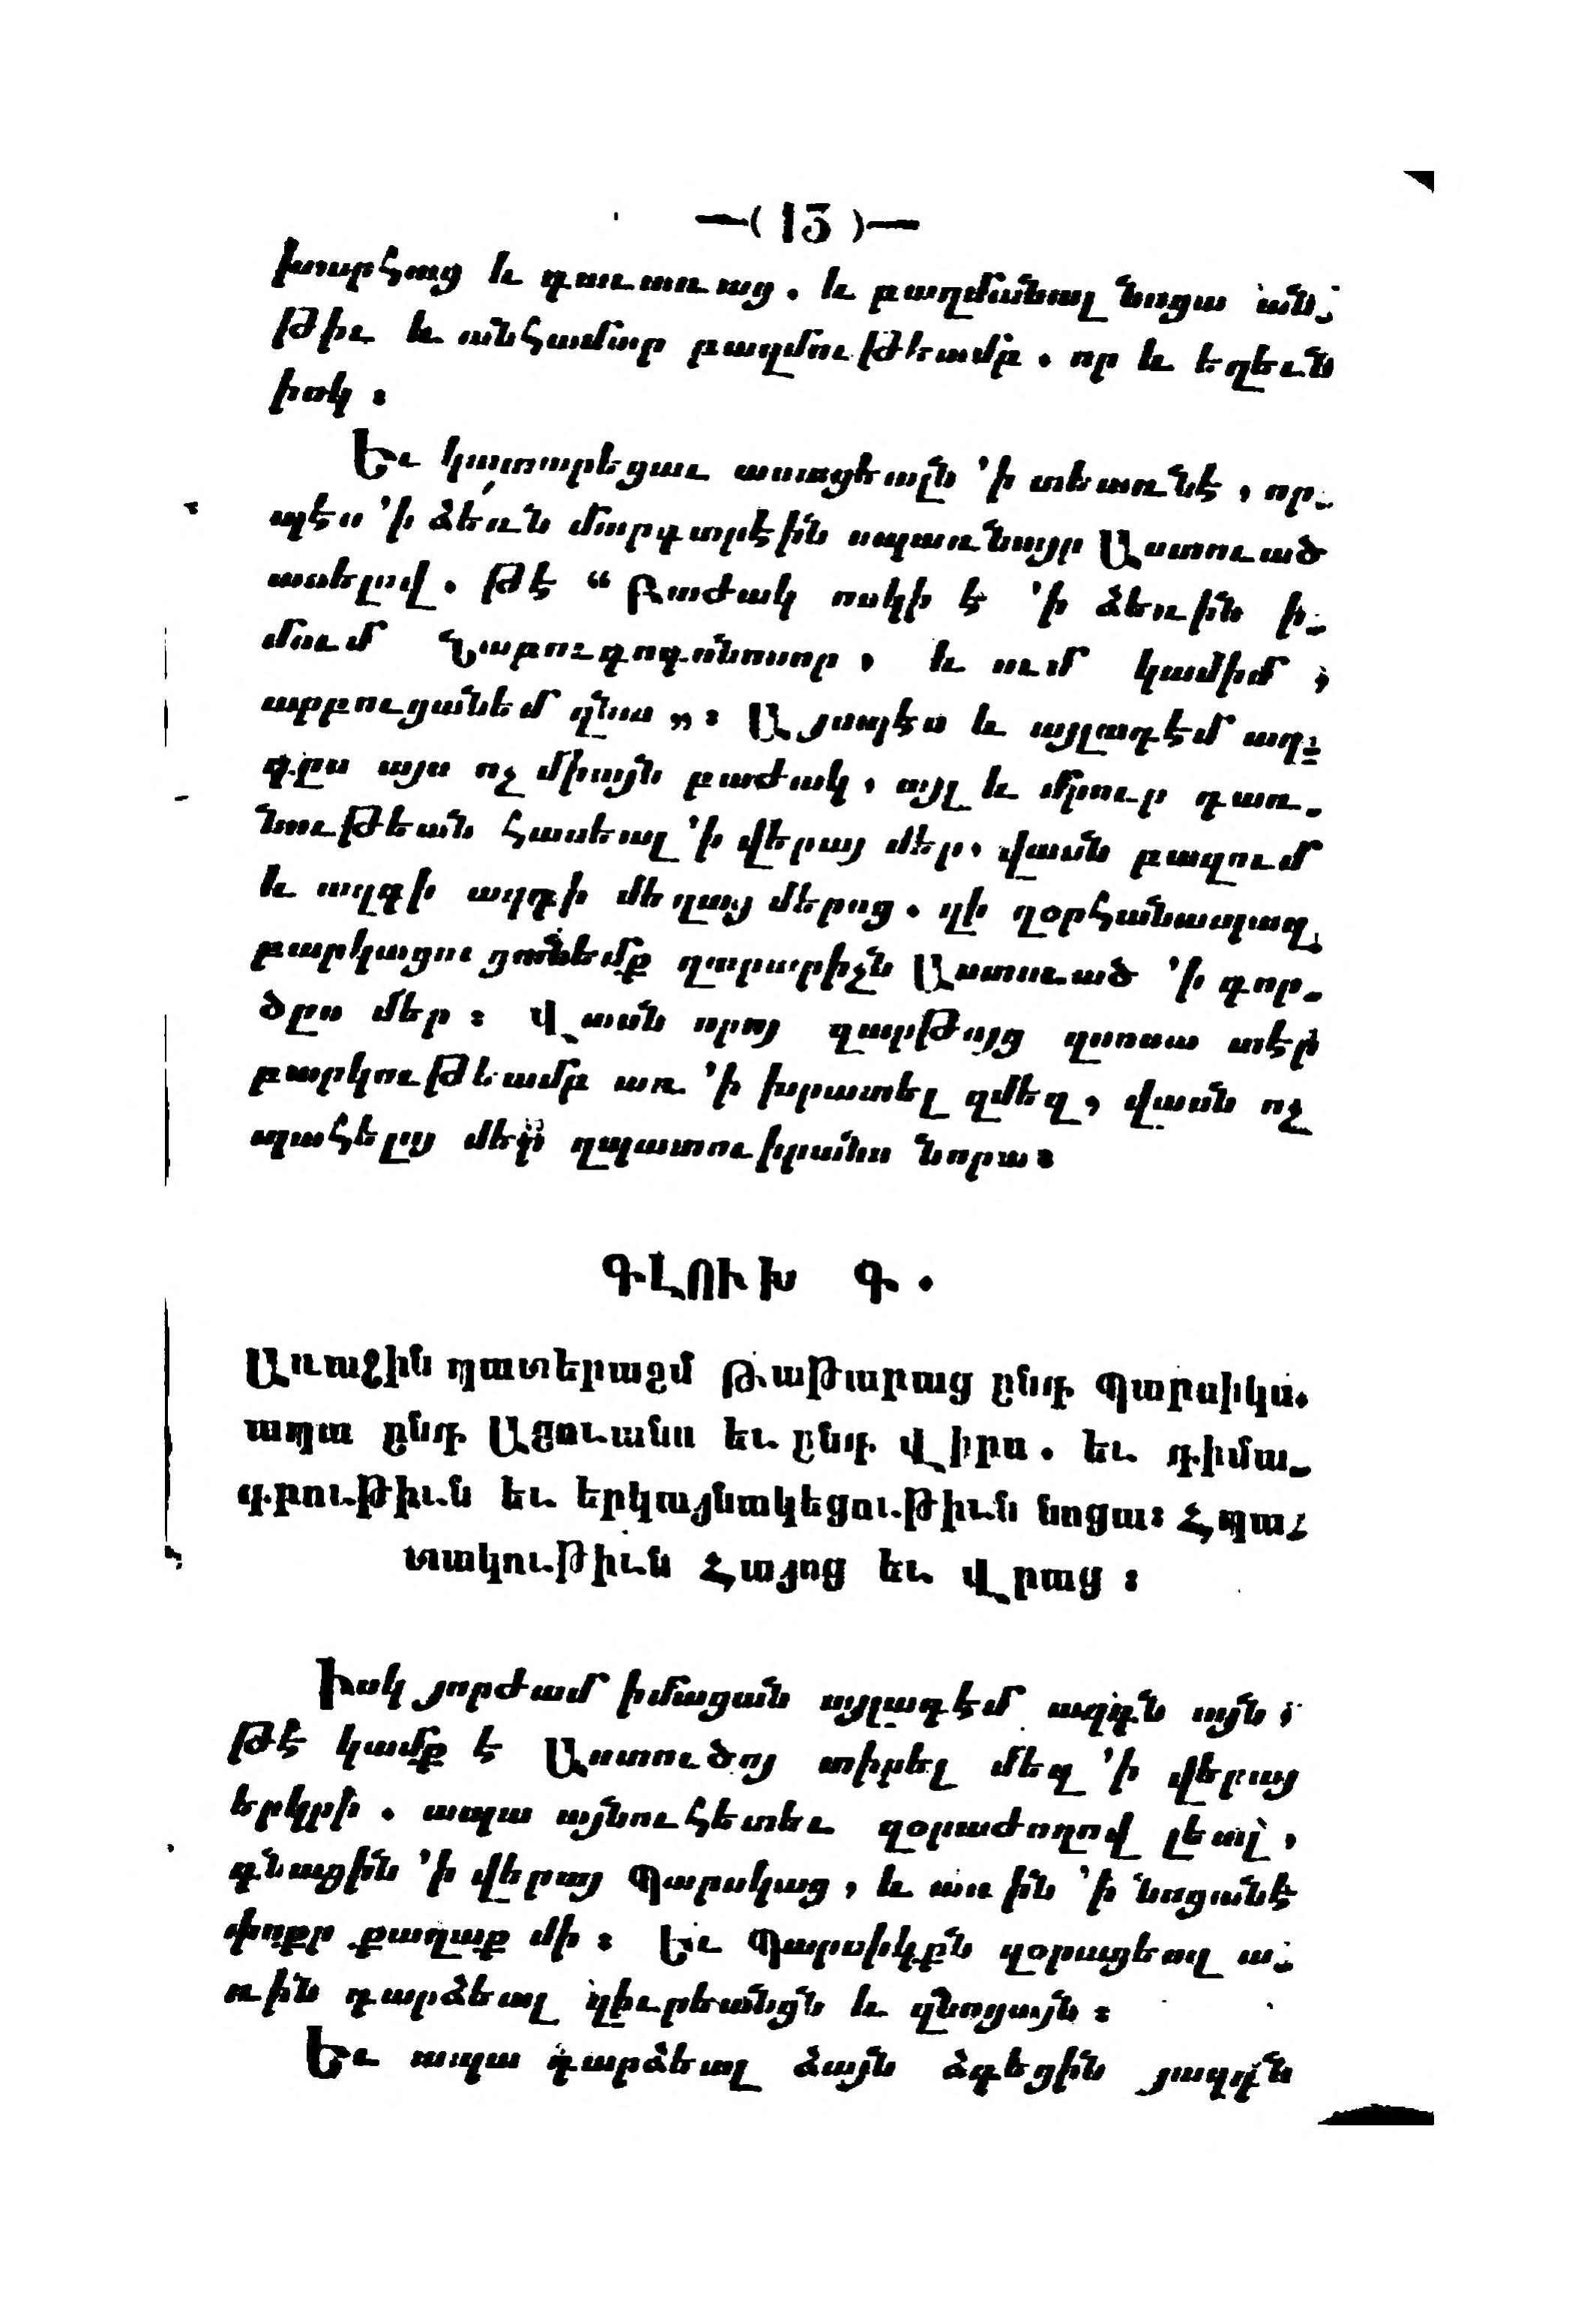 —( 13 )—
խարհաց և գաւառաց . և բազմանալ նոցա ան֊
թիւ և անհամար բազմութեամբ . որ և եղեւն
իսկ ։
Եւ կատարեցաւ ասացեալն ՚ի տեառնէ , որ֊
պէս ՚ի ձեռն մարգարէին սպառնայր Աստուած
ասելով . թէ “ Բաժակ ոսկի է ՚ի ձեռին ի֊
մում Նաբուգոգոնոսոր , և ում կամիմ ,
արբուցանեմ զնոս „ ։ Այսպէս և այլադէմ ազ֊
գըս այս ոչ միայն բաժակ , այլ և մրուր դառ֊
նութեան հասեալ ՚ի վերայ մեր , վասն բազում
և ազգի ազգի մեղաց մերոց . զի զօրհանապազ
բարկացուցանեմք զարարիչն Աստուած ՚ի գոր֊
ծըս մեր ։ Վասն որոյ զարթոյց զսոսա տէր
բարկութեամբ առ ՚ի խրատել զմեզ , վասն ոչ
պահելոյ մեր զպատուիրանս նորա ։
ԳԼՈՒԽ Գ .
Առաջին պատերազմ Թաթարաց ընդ Պարսիկս .
ապա ընդ Աղուանս եւ ընդ Վիրս . եւ դիմա֊
գրութիւն եւ երկայնակեցութիւն նոցա ։ Հպա֊
տակութիւն Հայոց եւ Վրաց ։
Իսկ յորժամ իմացան այլադէմ ազգն այն ,
թէ կամք է Աստուծոյ տիրել մեզ ՚ի վերայ
երկրի . ապա այնուհետեւ զօրաժողով լեալ ,
գնացին ՚ի վերայ Պարսկաց , և առին ՚ի նոցանէ
փոքր քաղաք մի ։ Եւ Պարսիկքն զօրացեալ ա֊
ռին դարձեալ զիւրեանցն և զնոցայն ։
Եւ ապա դարձեալ ձայն ձգեցին յազգն